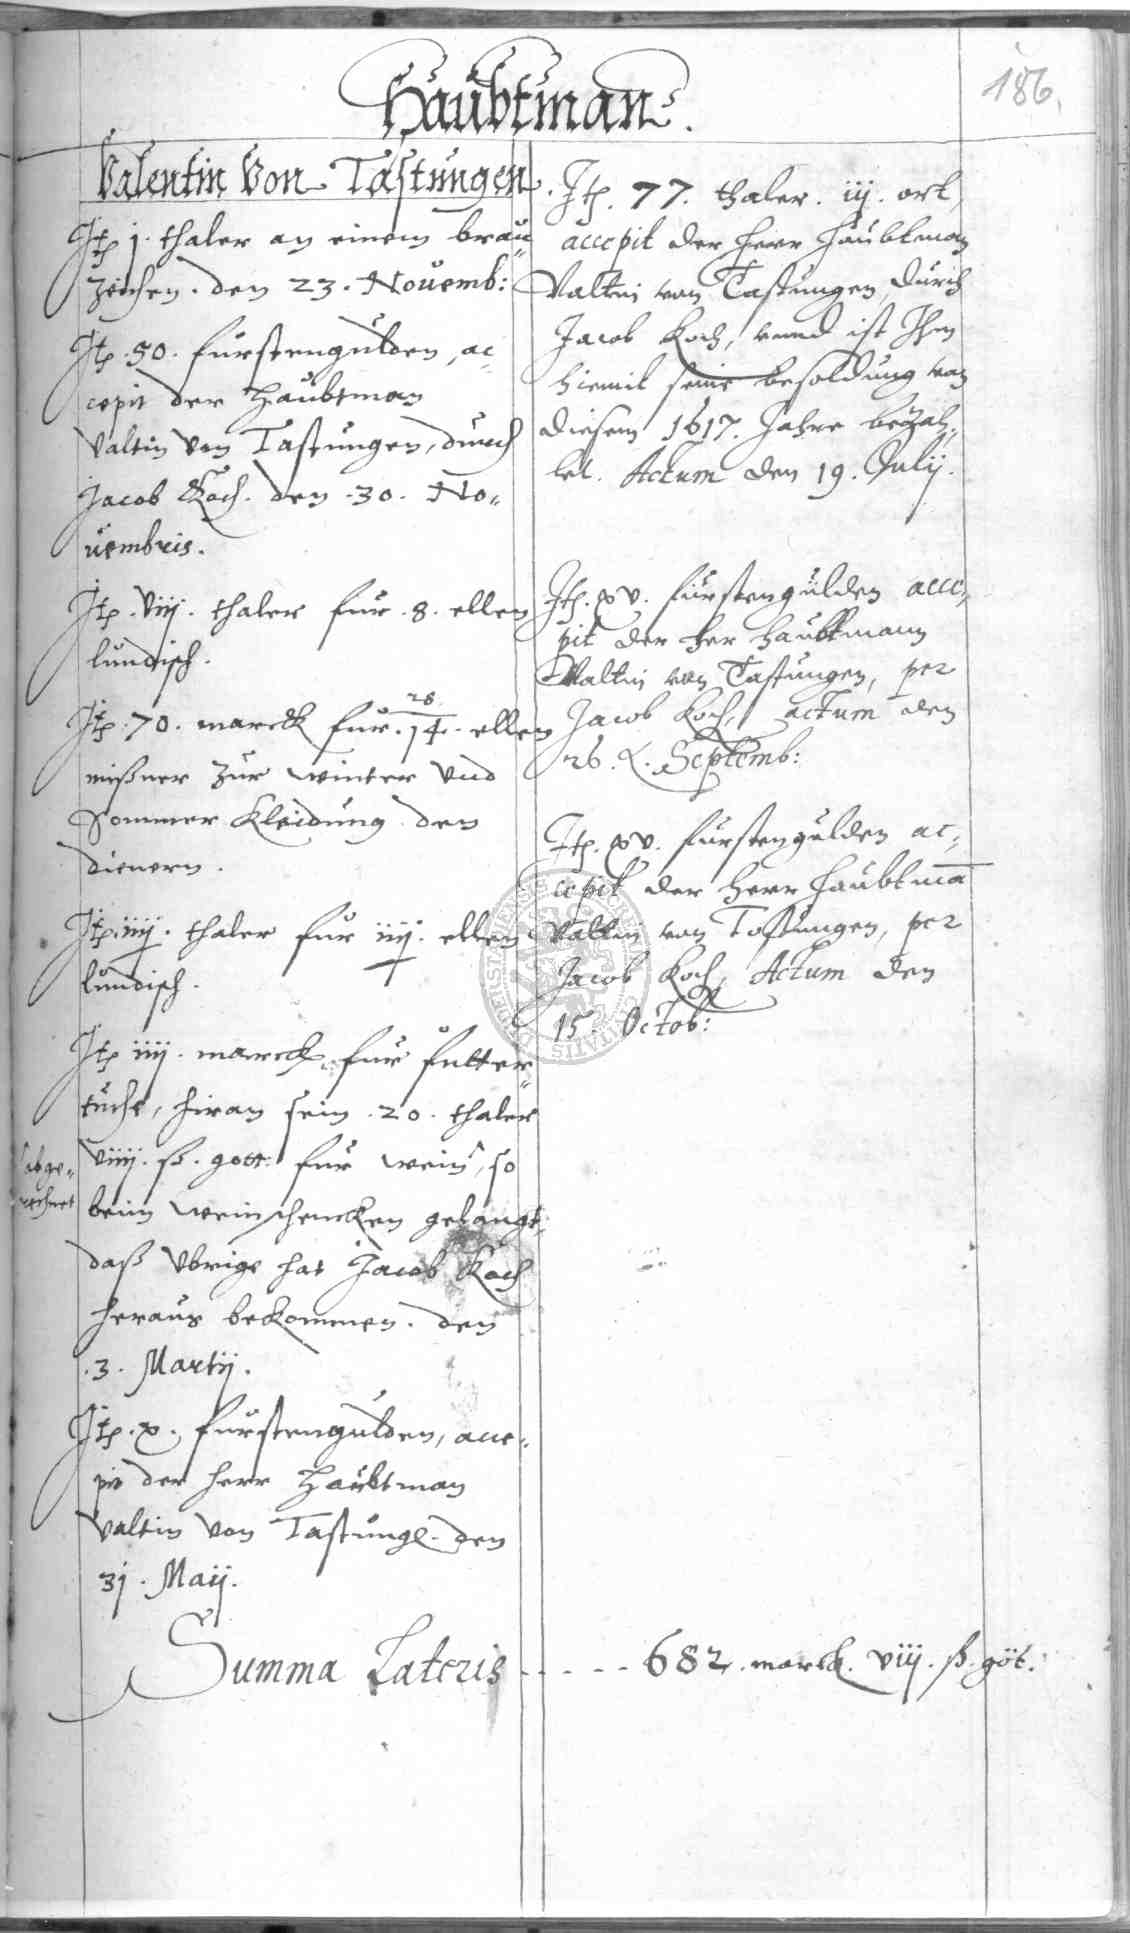 Haubtman.
186.
Valentin Von Tastungen.
Jtp j. thaler an einem brau
zeichen. den 23. Nouemb:
Jtp. 50. furstengulden, ac
cepit der Haubtman
Valtin Von Tastungen, durch
Jacob Koch. den .30. No„
uembris.
Jtp. Viij. thaler fur .8. ellen
lundisch.
28
Jtp. 70. marck fur. 14. ellen
mißner zur winter Vnd
Sommer Kleidung den
dienern.
Jtp. iiij. thaler fur iiij. ellen
lundisch.
Jtp iiij. marck fur futter„
tuche, hiran sein .20. thaler
abge„
rechnet
Viiij. ß. gott: fur wein, so
beim weinschencken gelangt,
daß Vbrige hat Jacob Koch
heraus bekommen. den
.3. Martij.
Jtp. x. furstengulden, acce„
pit der Herr Haubtman
Valtin Von Tastung. den
3j. Maij.
Jtp. 77. thaler. iij. ort,
accepit der Herr Haubtman
Valtin von Tastungen, durch
Jacob Koch, vnnd ist Jhm
hiemit seine besoldung von
diesem 1617. Jahre bezah„
let. Actum den 19. Julij.
Jtp. xv. furstengulden acce„
pit der Her Haubtmann
Valtin von Tastungen, per
Jacob Koch, actum den
26. Septemb:
Jtp. xv. furstengulden ac„
cepit der Herr Haubtmā
Valtin von Tastungen, per
Jacob Koch, Actum den
15. Octob:
Summa Lateris ----- 682. marck. viij. ß. göt.